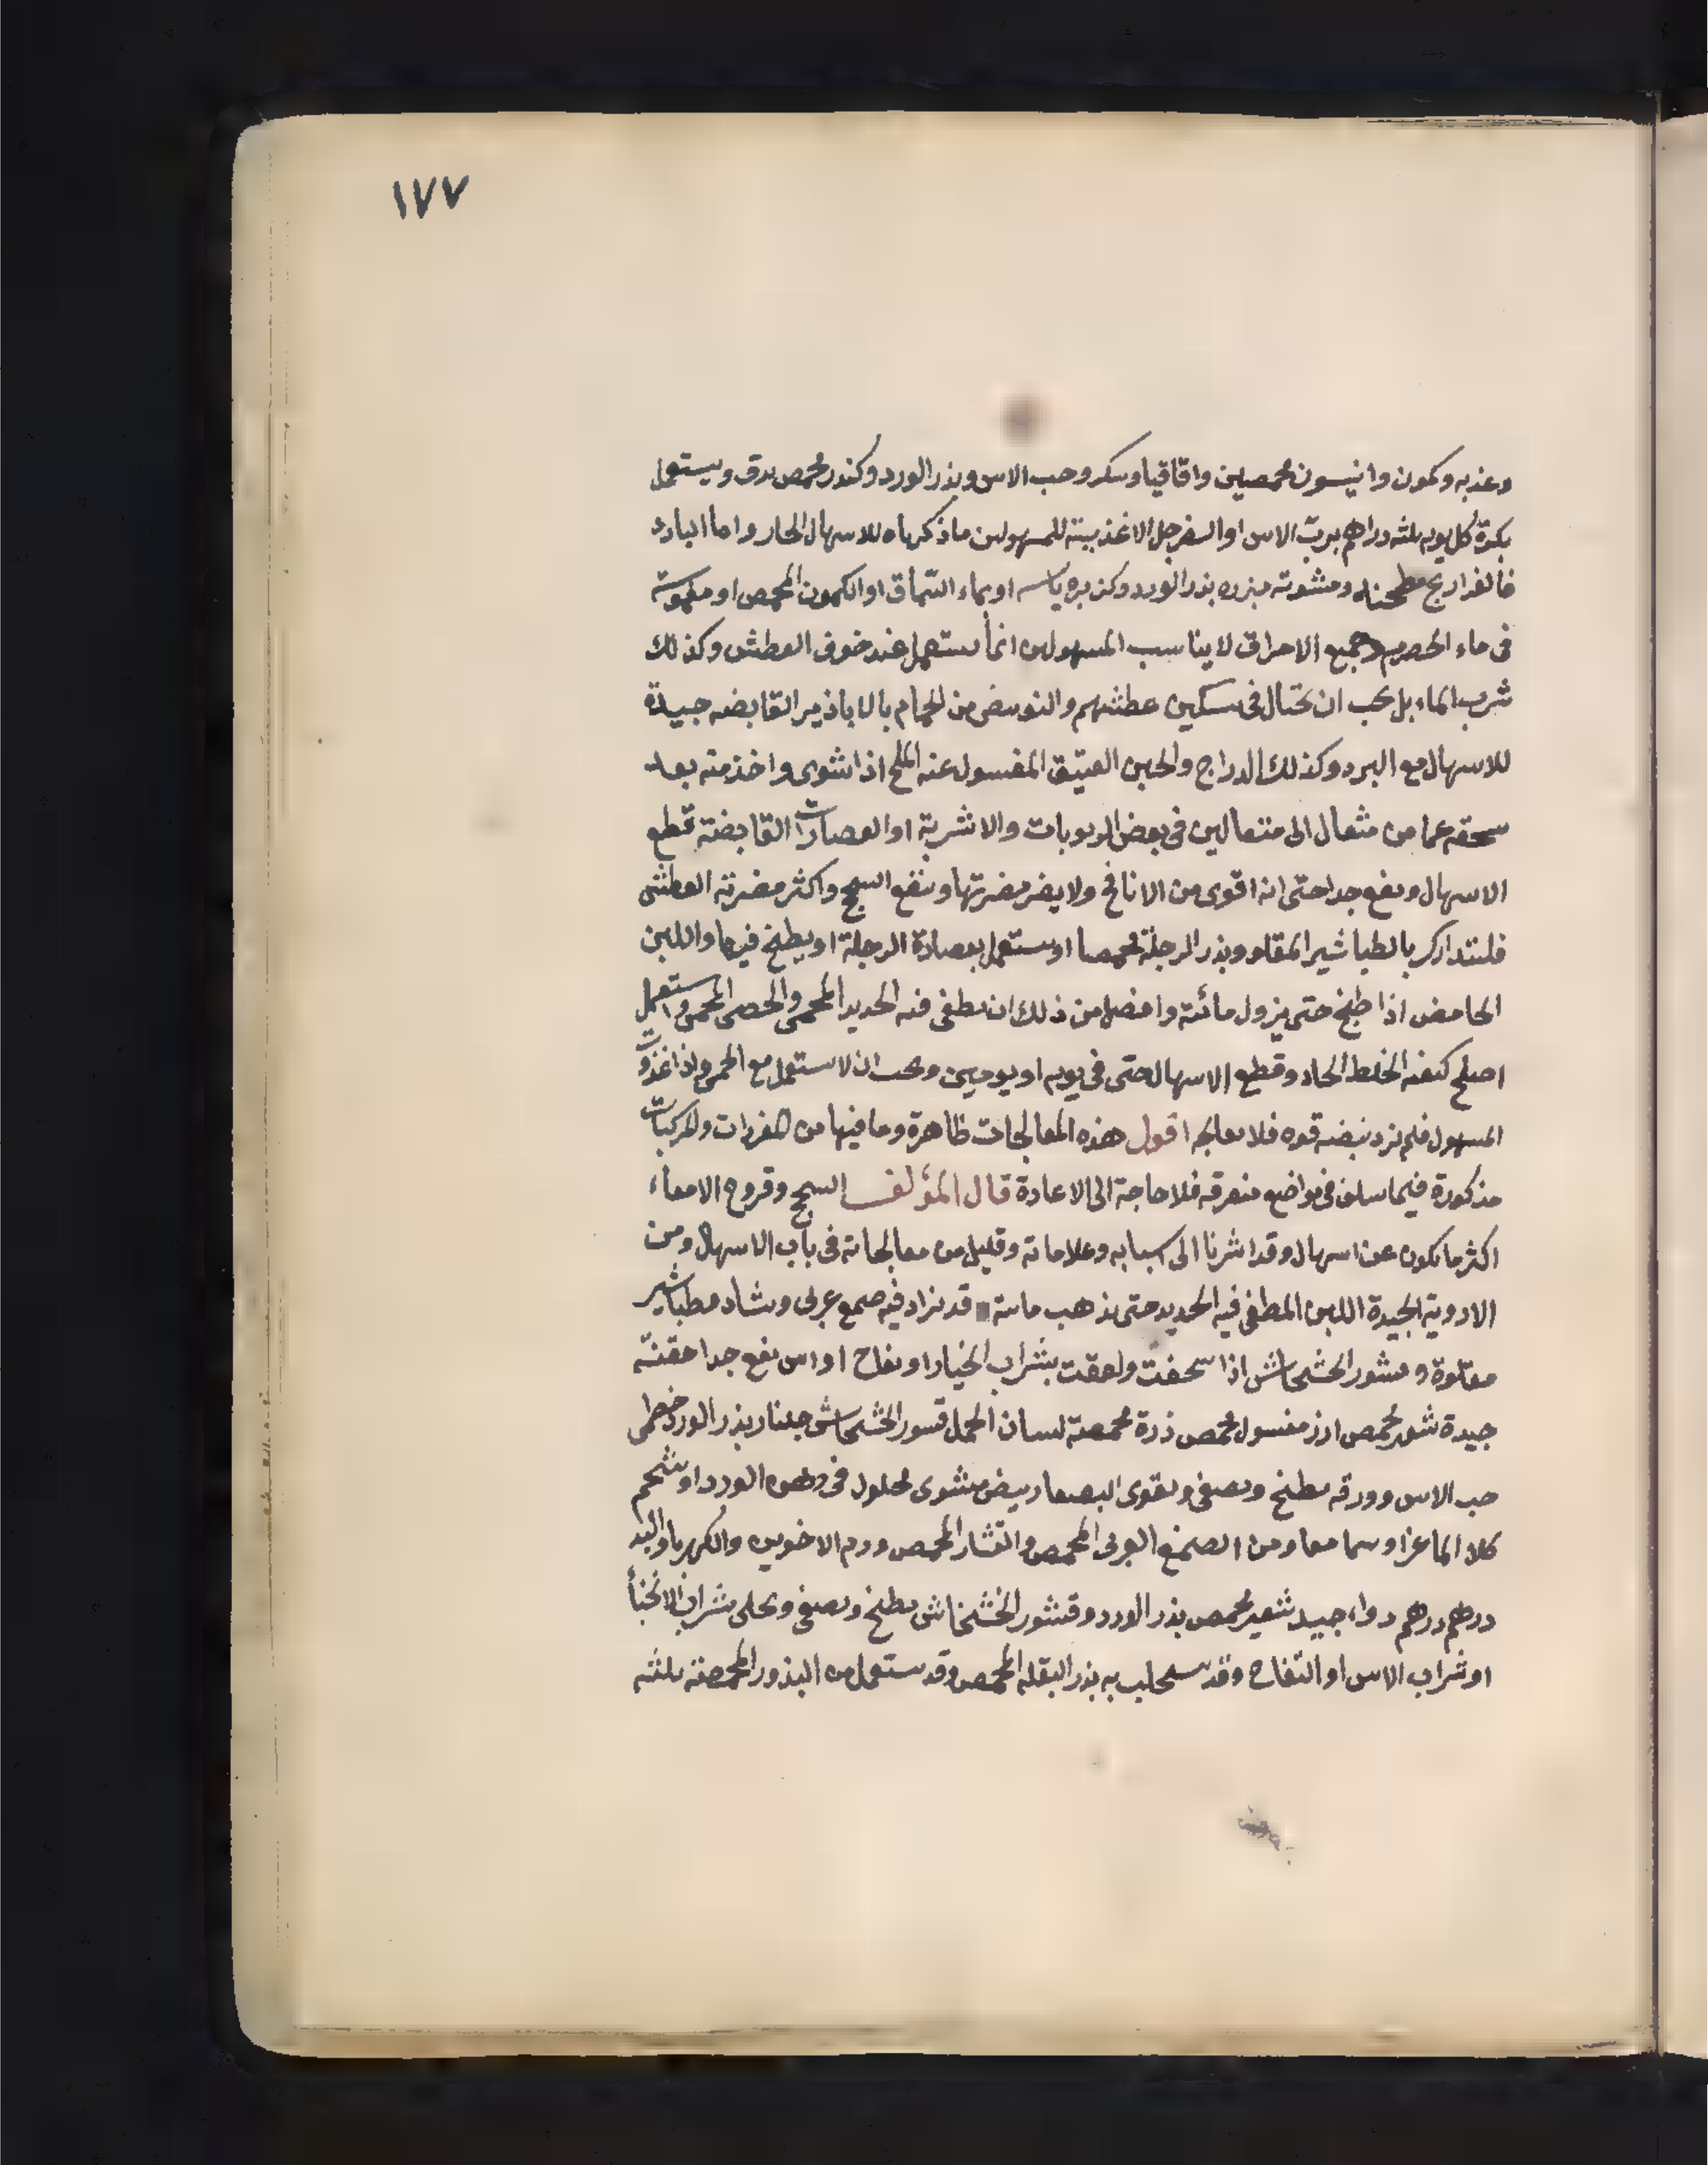 ١٧٧
وعذبه وكمون وانيسون محمصين واقاقيا وسكر وحب الاس وبذر الورد وكندر محمص يدق ويستعمل
بكرة كل يوم ثلثه دراهم برب الاس او السفرجل الاغذيبية للمسهولين ما ذكرناه للاسهال الحار واما البارد
فالفراريج مطجنه ومشوته مبزره ببذر الورد وكزبره يابسه او بماء السماق او الكمون المحمص او مغموسة
فى ماء الحصرم وجميع الامراق لا يناسب المسهولين انما يستعمل عند خوف العطش وكذلك
شرب الماء بل يجب ان يحتال فى تسكين عطشهم والنوسض من الحمام بالاباذير القابضه جيدة
للاسهال مع البرد وكذلك الدراج والجبن العتيق المغسول عنه الملح اذا شوى واخذ منه بعد
سحقه عما من مثقال الى مثقالين فى بعض الربوبات والاشربة او العصارات القابضة قطع
الاسهال ونفع جدا حتى انه اقوى من الانافح ولا يضر مضرتها وينفع السحج واكثر مضرته العطش
فليتدارك بالطباشير المقلو وبذر الرجلة محمصا او يستعمل بعصارة الرجلة او يطبخ فيها واللبن
الحامض اذا طبخ حتى يزول مائته وافضل من ذلك ان يطفى فيه الحديد المحمى والحصى المحمى واستعمل
اصلح كيفيه الخلط الحاد وقطع الاسهال حتى فى يوم او يومين ويجب ان لا يستعمل مع الحمى واذا غذوت
المسهول فلم يزد نبضه قوه فلا تعالجه اقول هذه المعالجات ظاهرة وما فيها من المفردات والمركبات
مذكورة فيما سلف فى مواضع متفرقه فلا حاجة الى الاعادة قال المؤلف السحج وقروح الامعاء
اكثر ما يكون عن اسهال وقد اشرنا الى اسبابه وعلاماته وقليل من معالجاته فى باب الاسهال ومن
الادوية الجيدة اللبن المطفى فيه الحديد حتى يذهب مائية قد يزاد فيه صمغ عربى ونشاء وطباشير
مقلوة وقشور الخشخاش اذا سحقت ولعقت بشراب الخيار او تفاح او اس نفع جدا حقنة
جيدة شعير محمص ارز مغسول محمص ذرة محمصة لسان الحمل قشور الخشخاش جلنار بذر الورد خطمى
حب الاس وورقه يطبخ ويصفى ويقوى بصفار بيض مشوى محلول فى دهن الورد او شحم
كلا الماعز او سما معا ومن الصمغ العربى المحمص والنشا المحمص ودم الاخوين والكهربا والبد
درهم درهم دواء جيد شعير محمص بذر الورد وقشور الخشخاش يطبخ ويصفى ويحلى بشراب الانجبا
او شراب الاس او التفاح وقد يستحلب به بذر البقله المحمص وقد يستعمل من البذور المحمصة ثلثه